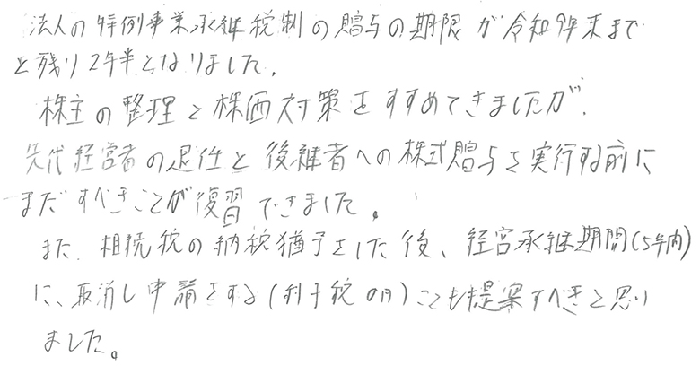 法人の特例事業承継税制の贈与の期限が令和9年末まで
と残り2年半となりました。
株主の整理と株価対策をすすめてきましたが、
先代経営者の退任と後継者への株式贈与を実行する前に
まだすべきことが復習できました。
また、相続税の納税猶予をした後、経営承継期間(5年内)
に、取消し申請をする(利子税0円)ことも提案すべきと思い
ました。